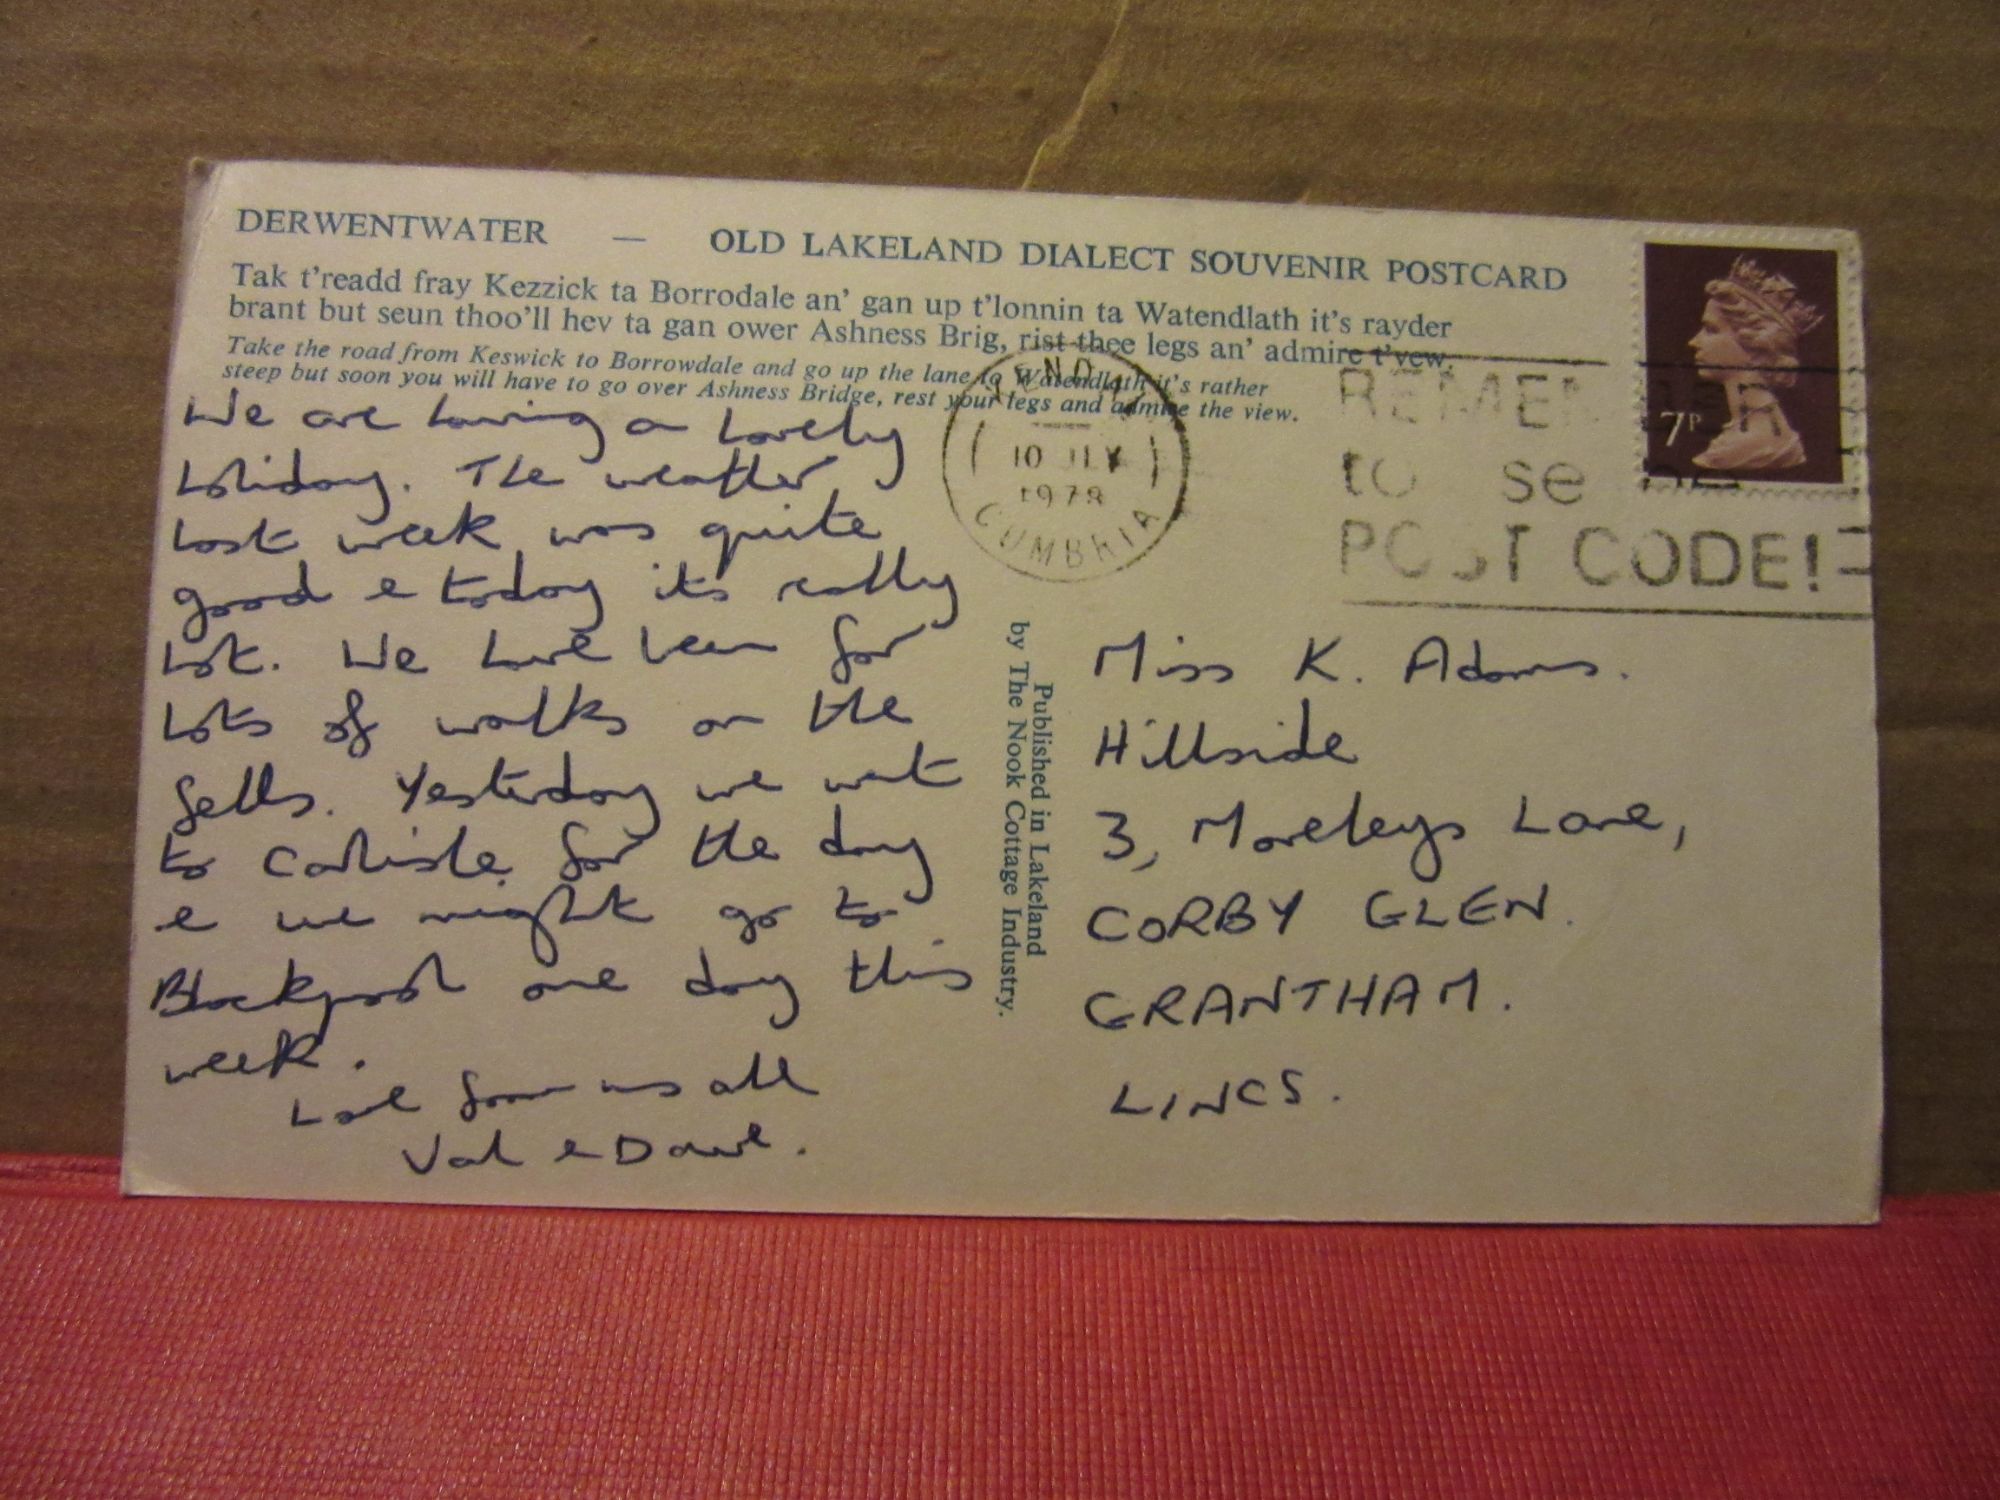 DERWENTWATER — OLD LAKELAND DIALECT SOUVENIR POSTCARD
Tak t'readd fray Kezzick ta Borrodale an' gan up t'lonnin ta Watendlath it's rayder
brant but seun thoo'll hev ta gan ower Ashness Brig, rist thee legs an' admire t'vew.
Take the road from Keswick to Borrowdale and go up the lane to Watendlath it's rather
steep but soon you will have to go over Ashness Bridge, rest your legs and admire the view.
We are having a lovely
holiday. The weather
last week was quite
good & today its really
hot. We have been for
lots of walks on the
fells. Yesterday we went
to Carlisle for the day
& we might go to
Blackpool one day this
week.
Love from us all
Val & Dave.
KENDAL
10 JLY
1978
CUMBRIA
REMEMBER
to use the
POST CODE!
7P
Published in Lakeland
by The Nook Cottage Industry.
Miss K. Adams.
Hillside
3, Moreleys Lane,
CORBY GLEN.
GRANTHAM.
LINCS.